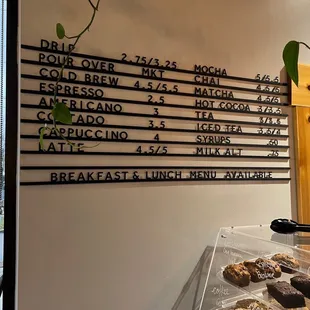 DRIP 2.75/3.25
POUR OVER MKT
COLD BREW 4.5/5.5
ESPRESSO 2.5
AMERICANO 3
CORTADO 3.5
CAPPUCCINO 4
LATTE 4.5/5
MOCHA 5/5.5
CHAI 4.5/5
MATCHA
HOT COCOA
TEA
ICED TEA
SYRUPS .60
MILK ALT .75
BREAKFAST & LUNCH MENU AVAILABLE